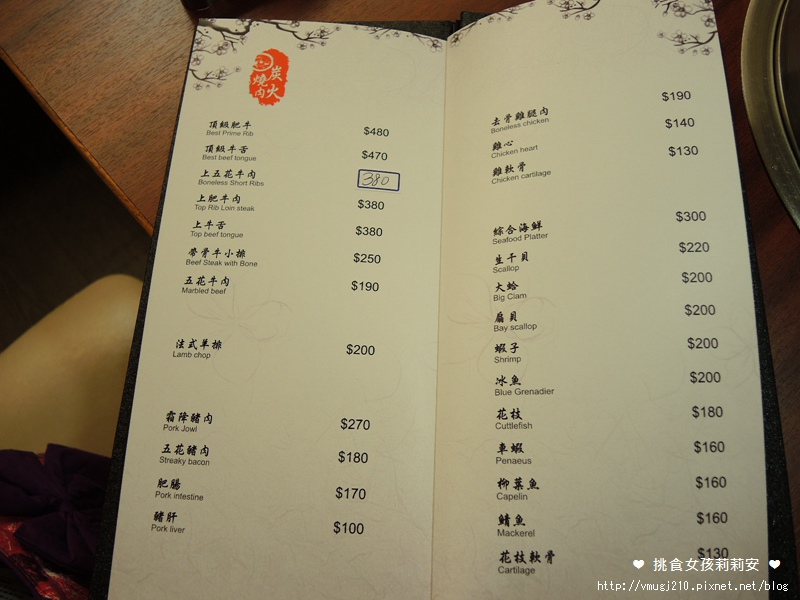 炭火
燒肉
頂級肥牛 $480
Best Prime Rib
頂級牛舌 $470
Best beef tongue
上五花牛肉 380
Boneless Short Ribs
上肥牛肉 $380
Top Rib Loin steak
上牛舌 $380
Top beef tongue
帶骨牛小排 $250
Beef Steak with Bone
五花牛肉 $190
Marbled beef
法式羊排 $200
Lamb chop
霜降豬肉 $270
Pork Jowl
五花豬肉 $180
Streaky bacon
肥腸 $170
Pork intestine
豬肝 $100
Pork liver
去骨雞腿肉 $190
Boneless chicken
雞心 $140
Chicken heart
雞軟骨 $130
Chicken cartilage
綜合海鮮 $300
Seafood Platter
生干貝 $220
Scallop
大蛤 $200
Big Clam
扇貝 $200
Bay scallop
蝦子 $200
Shrimp
冰魚 $200
Blue Grenadier
花枝 $180
Cuttlefish
車蝦 $160
Penaeus
柳葉魚 $160
Capelin
鯖魚 $160
Mackerel
花枝軟骨 $130
Cartilage
❤ 挑食女孩莉莉安 ❤
http://vmugj210.pixnet.net/blog